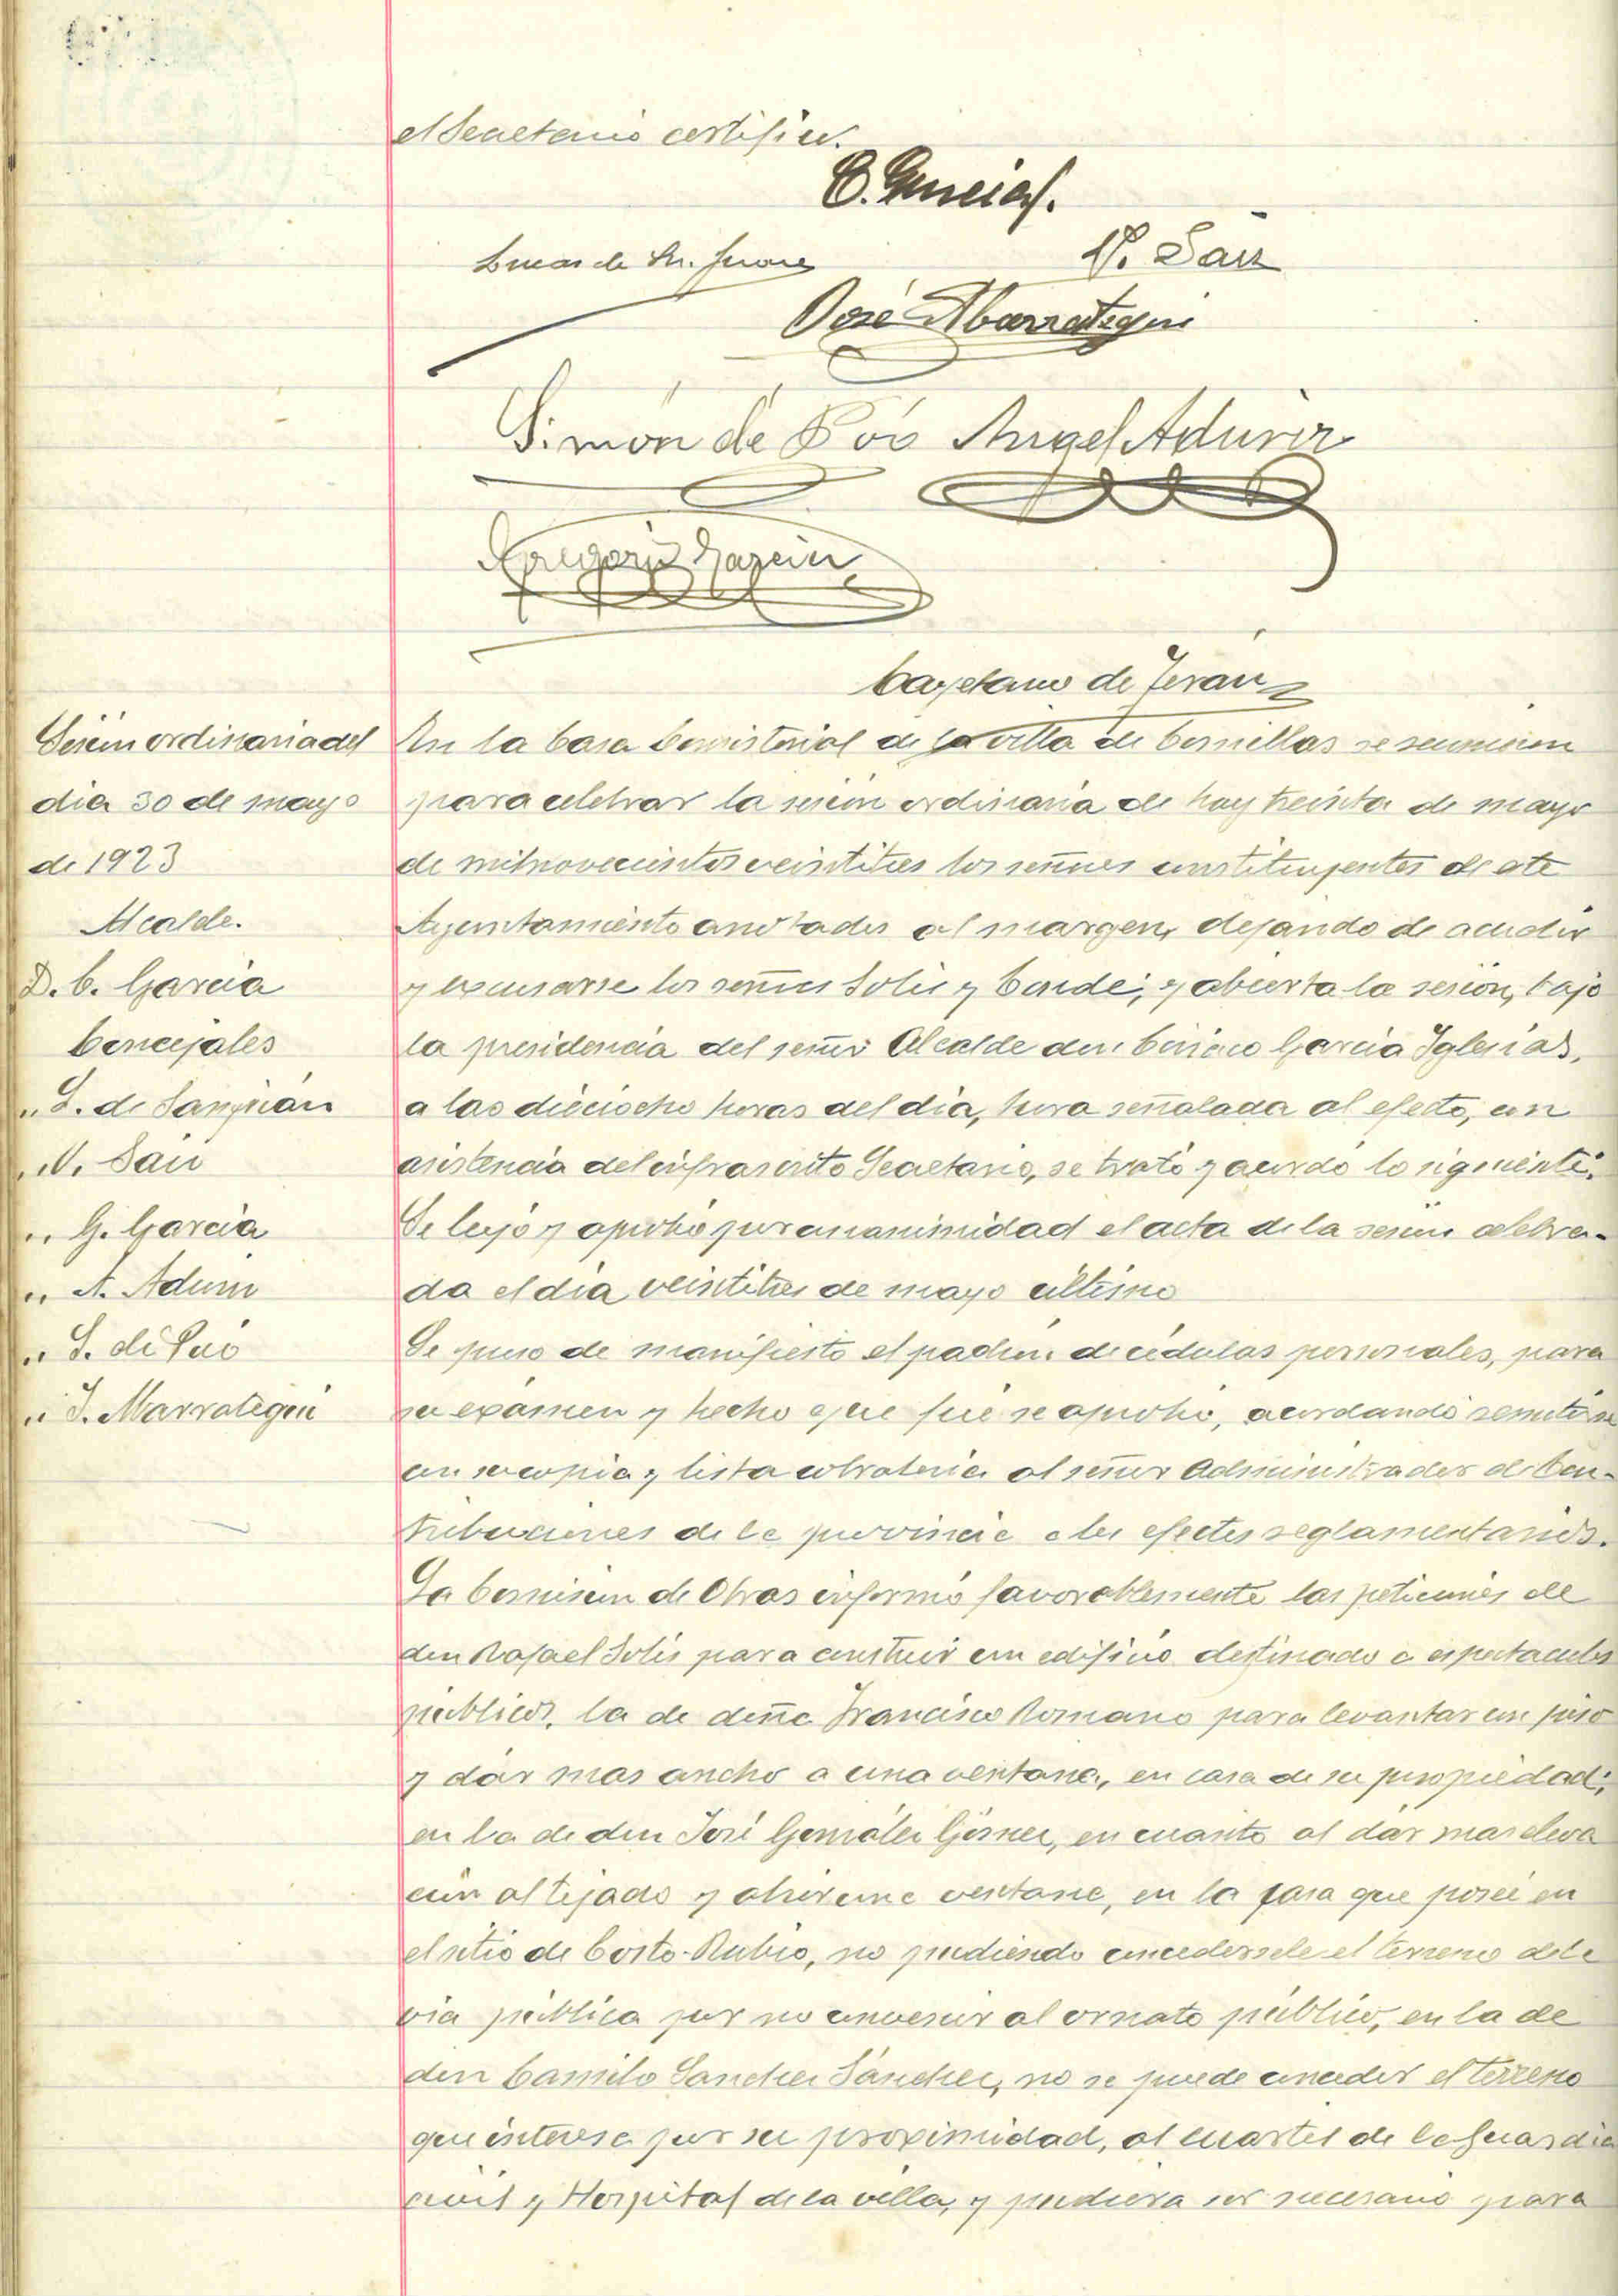 el Secretario certifico.
C. García
Lucas de Sn. Juan
V. Saiz
José Abarrategui
Simón de Poó Angel Aduriz
Gregorio García
Cayetano de Terán
Sesión ordinaria del
dia 30 de mayo
de 1923
Alcalde.
D. C. García
Concejales
" L. de Sanjuán
" V. Saiz
" G. García
" A. Aduriz
" S. de Poó
" J. Abarrategui
En la Casa Consistorial de la villa de Comillas se reunieron
para celebrar la sesión ordinaria de hoy treinta de mayo
de mil novecientos veintitres los señores constituyentes de este
Ayuntamiento anotados al margen, dejando de acudir
y excusarse los señores Solis y Conde; y abierta la sesión, bajo
la presidencia del señor Alcalde don Ciriaco García Iglesias,
a las dieciocho horas del dia, hora señalada al efecto, con
asistencia del infrascrito Secretario, se trató y acordó lo siguiente:
Se leyó y aprobó por unanimidad el acta de la sesión celebra-
da el dia veintitres de mayo último
Se puso de manifiesto el padrón de cédulas personales, para
su exámen y hecho que fué se aprobó, acordando remitirse
con su copia y lista cobratoria al señor Administrador de Con-
tribuciones de la provincia a los efectos reglamentarios.
La Comisión de Obras informó favorablemente las peticiones de
don Rafael Solis para construir un edificio destinado a espectaculos
publicos, la de doña Francisca Romano para levantar un piso
y dar mas ancho a una ventana, en casa de su propiedad;
en la de don José González Gómez, en cuanto al dar mas eleva
ción al tejado y abrir una ventana, en la casa que posee en
el sitio de Corto-Rubio, no pudiendo concedersele el terreno de la
via pública por no convenir al ornato público, en la de
don Camilo Sanchez Sánchez, no se puede conceder el terreno
que interesa por su proximidad, al cuartel de la Guardia
civil y Hospital de la villa, y pudiera ser necesario para